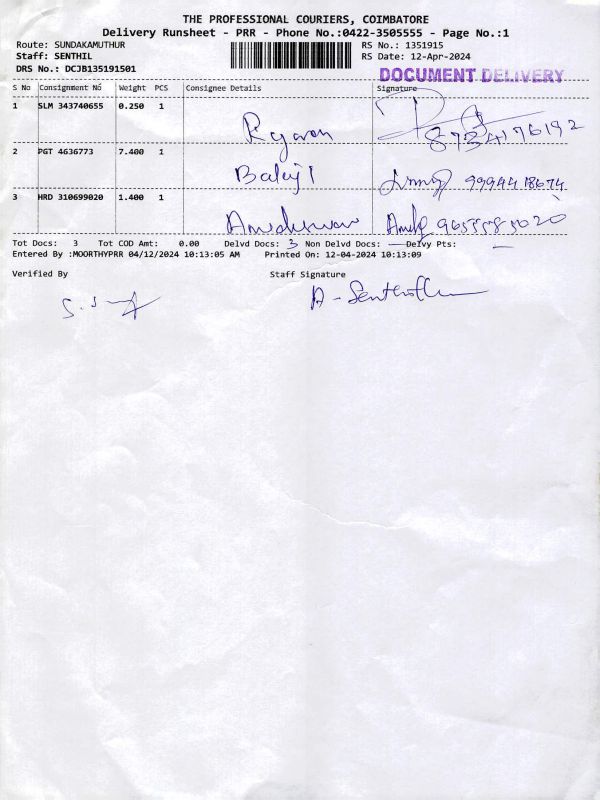 THE PROFESSIONAL COURIERS, COIMBATORE
Delivery Runsheet - PRR - Phone No.:0422-3505555 - Page No.:1
Route: SUNDAKAMUTHUR RS No.: 1351915
Staff: SENTHIL RS Date: 12-Apr-2024
DRS No.: DCJB135191501 DOCUMENT DELIVERY
S No Consignment No Weight PCS Consignee Details Signature
1 SLM 343740655 0.250 1
8734176192
2 PGT 4636773 7.400 1 Balaji 9994418674
3 HRD 310699020 1.400 1
Tot Docs: 3 Tot COD Amt: 0.00 Delvd Docs: 3 Non Delvd Docs: — Delvy Pts: —
Entered By :MOORTHYPRR 04/12/2024 10:13:05 AM Printed On: 12-04-2024 10:13:09
Verified By Staff Signature